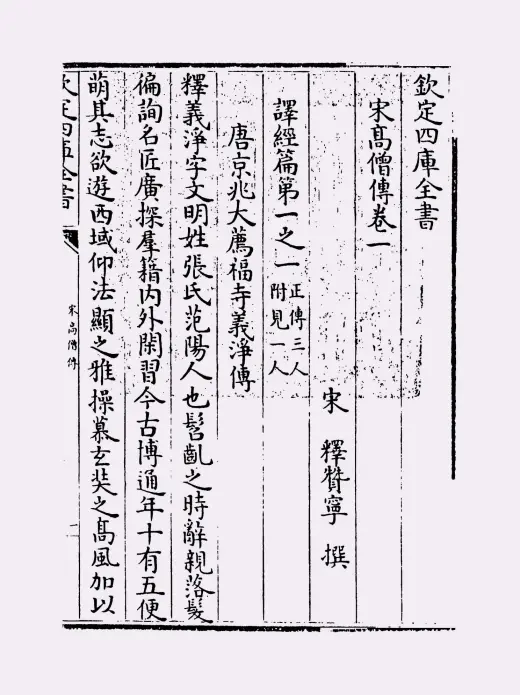 欽定四庫全書
宋高僧傳卷一
宋 釋贊寧 撰
譯經篇第一之一 正傳三人 附見一人
唐京兆大薦福寺義淨傳
釋義淨字文明姓張氏范陽人也髫齓之時辭親落髮
徧詢名匠廣探羣籍内外閑習今古博通年十有五便
萌其志欲遊西域仰法顯之雅操慕玄奘之髙風加以
欽定四庫全書
宋高僧傳
一